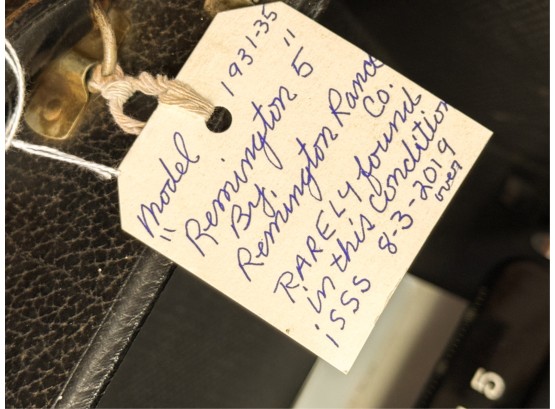 1931-35
"Model
Remington 5"
By:
Remington Rand
Co.
RARELY found
in this condition
isss 8-3-2019
over
5